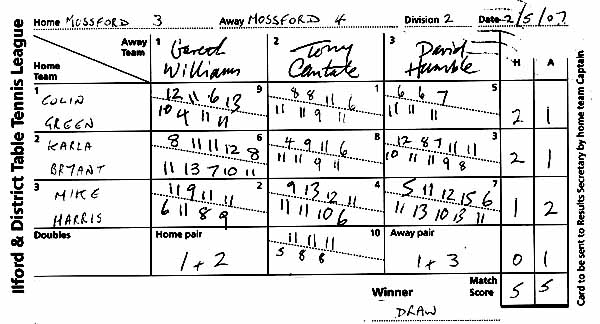 Ilford & District Table Tennis League
Home MOSSFORD 3 Away MOSSFORD 4 Division 2 Date 2/5/07
Away Team
Home Team
1 Gareth Williams
2 Tony Cantale
3 David Humble
H A
1 COLIN GREEN
9
12 11 6 13
10 4 11 11
1
8 8 11 6
11 11 9 11
5
6 6 7
11 11 11
2 1
2 KARLA BRYANT
6
8 11 11 12 8
11 13 7 10 11
8
4 9 11 6
11 11 9 11
3
12 8 7 11 11
10 11 11 9 8
2 1
3 MIKE HARRIS
2
11 9 11 11
6 11 8 9
4
9 13 12 11
11 11 10 6
7
5 11 12 15 6
11 13 10 13 11
1 2
Doubles
Home pair
1 + 2
10
11 11 11
5 8 8
Away pair
1 + 3
0 1
Winner
DRAW
Match Score
5 5
Card to be sent to Results Secretary by home team Captain